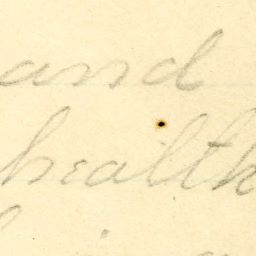 and
health